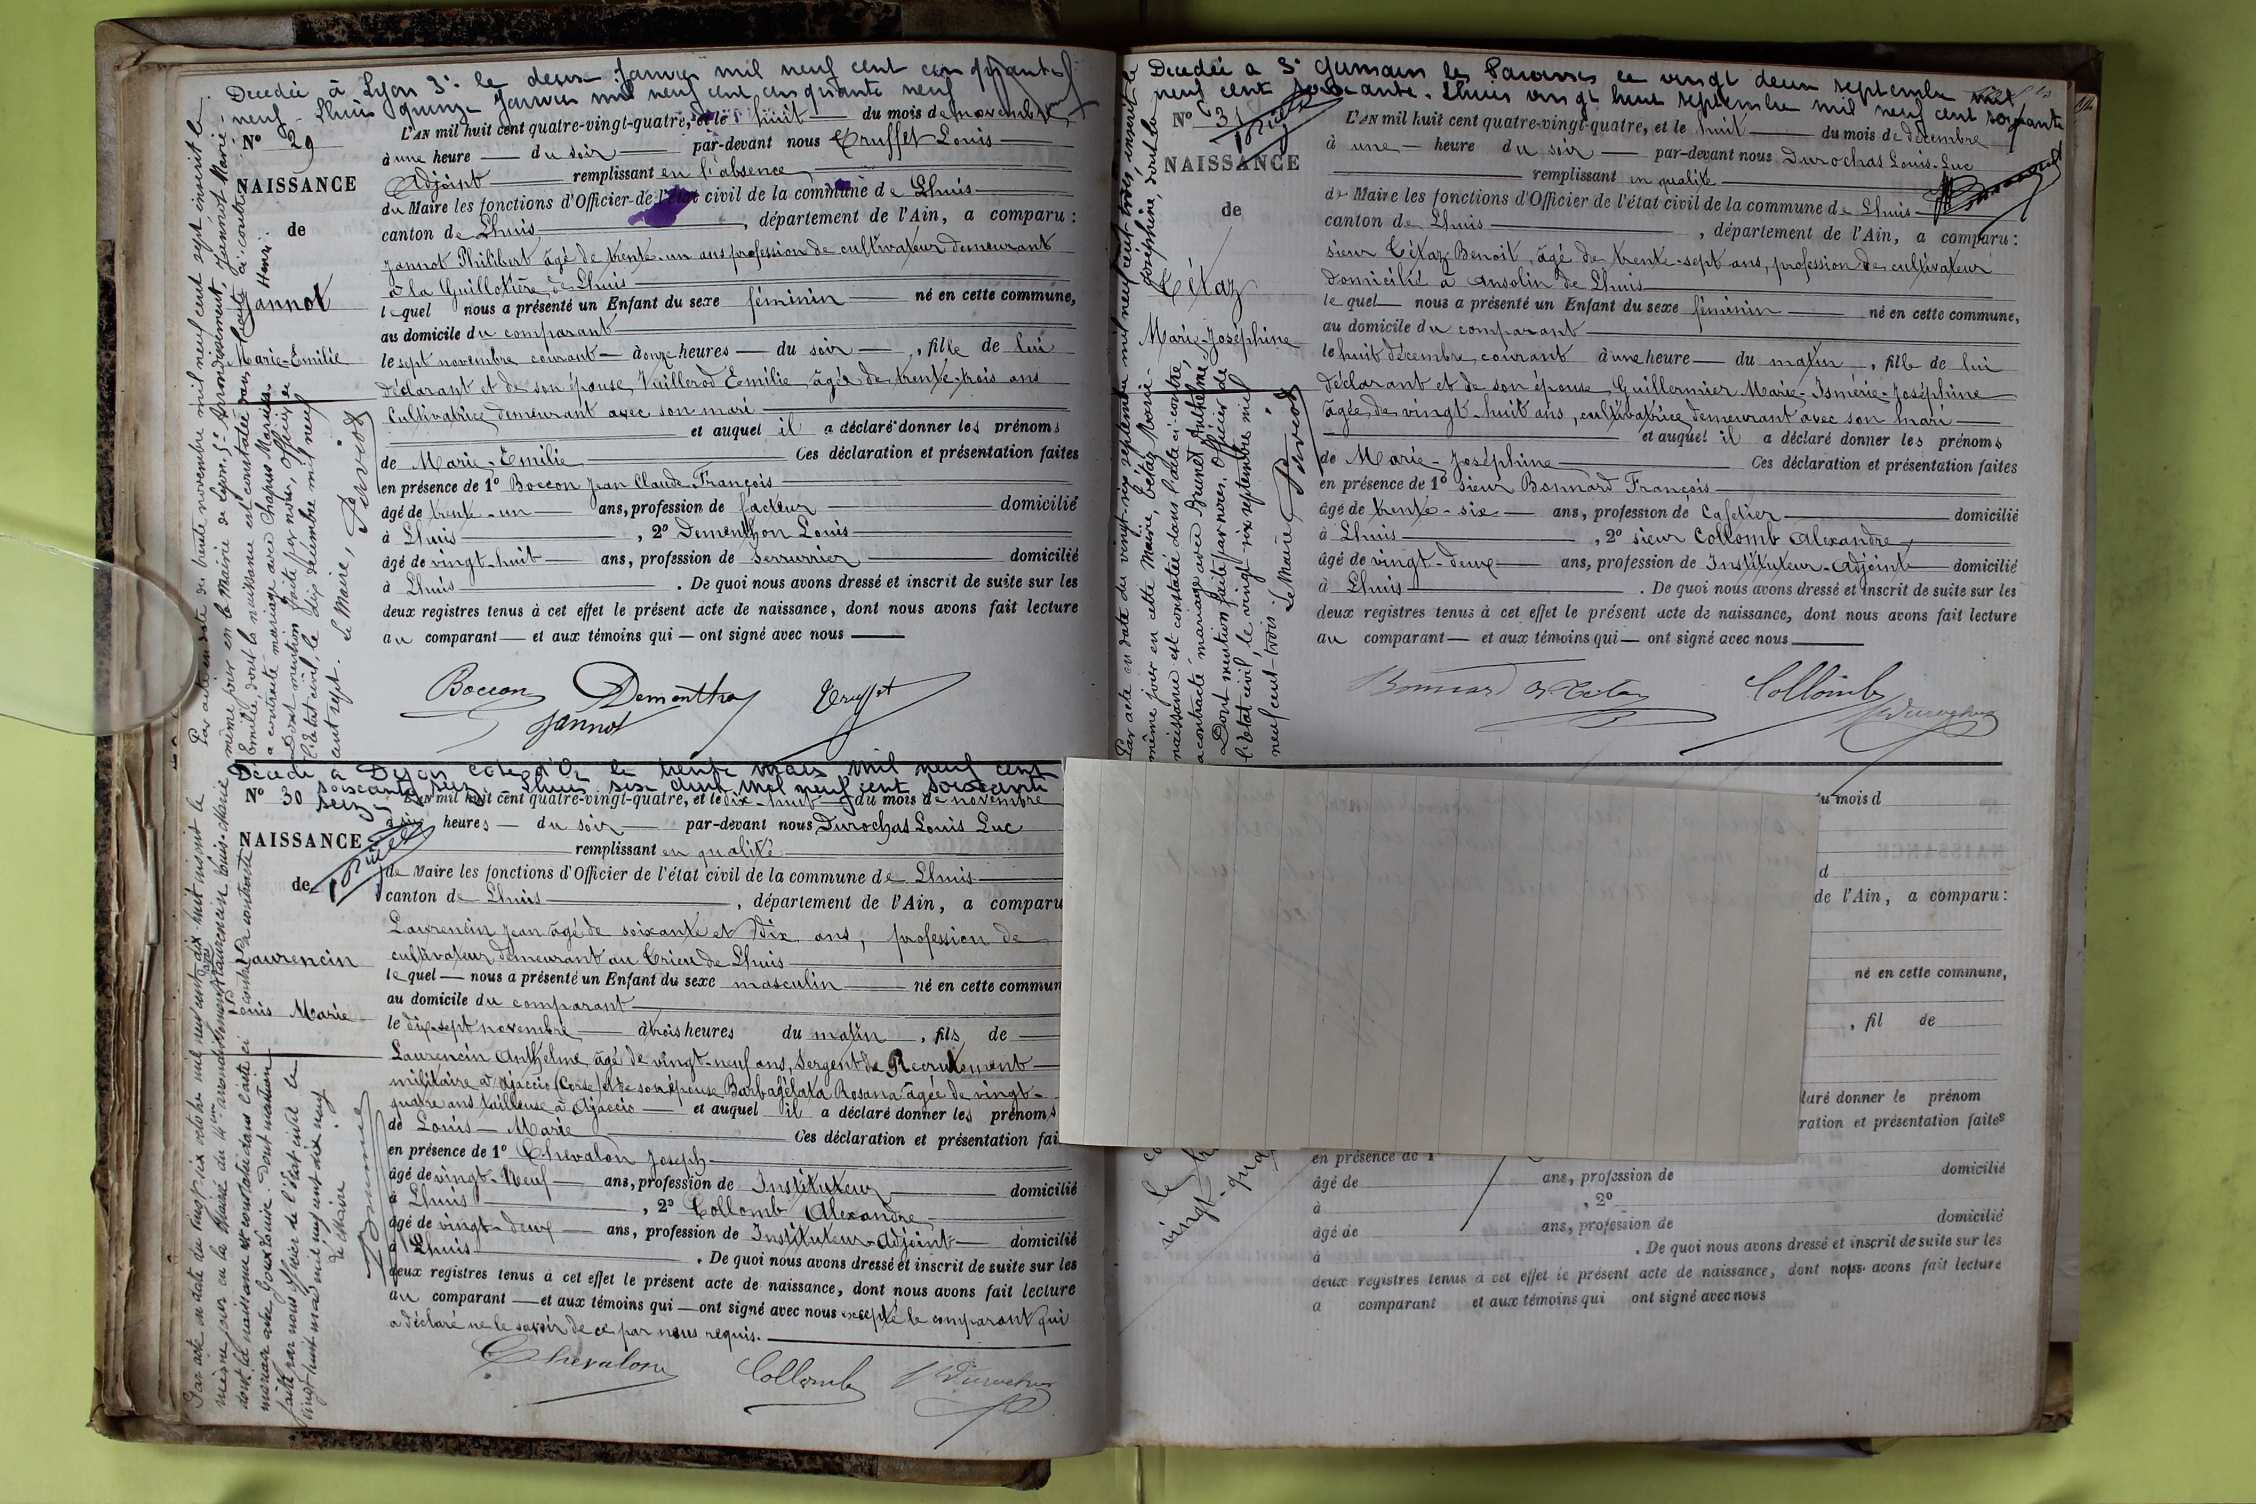 Decedée à Lyon 3e le deux janvier mil neuf cent cinquante
neuf - Lhuis quinze janvier mil neuf cent cinquante neuf
No 29
NAISSANCE
de
Jannot
Marie-Emilie
L'AN mil huit cent quatre-vingt-quatre, et le huit du mois de novembre
à une heure du soir par-devant nous Truffet Louis
Adjoint remplissant en l'absence
du Maire les fonctions d'Officier de l'état civil de la commune de Lhuis
canton de Lhuis, département de l'Ain, a comparu :
Jannot Philibert âgé de trente-un ans profession de cultivateur demeurant
à la Guillotière de Lhuis
lequel nous a présenté un Enfant du sexe féminin né en cette commune,
au domicile du comparant
le sept novembre courant à onze heures du soir, fille de lui
déclarant et de son épouse, Vuillerod Emilie, âgée de trente-trois ans
cultivatrice demeurant avec son mari
et auquel il a déclaré donner les prénoms
de Marie-Emilie Ces déclaration et présentation faites
en présence de 1o Boccon Jean Claude François
âgé de trente-un ans, profession de facteur domicilié
à Lhuis, 2o Dementhon Louis
âgé de vingt-huit ans, profession de serrurier domicilié
à Lhuis. De quoi nous avons dressé et inscrit de suite sur les
deux registres tenus à cet effet le présent acte de naissance, dont nous avons fait lecture
au comparant et aux témoins qui ont signé avec nous
Boccon Dementhon Truffet
Jannot
Par acte en date du trente novembre mil neuf cent sept, inscrit le
même jour en la Mairie de Lyon, 5e Arrondissement, Jannot Marie-
Emilie, dont la naissance est constatée dans l'acte ci-contre
a contracté mariage avec Chapus Marius Henri.
Dont mention faite par nous, Officier de
l'état civil, le dix décembre mil neuf
cent sept. Le Maire, Perviod
Décédé à Dijon Côte d'Or le trente mars mil neuf cent
soixante seize. Lhuis six avril mil neuf cent soixante
seize
No 30
NAISSANCE
de
Laurencin
Louis Marie
L'AN mil huit cent quatre-vingt-quatre, et le dix-huit du mois de novembre
à six heures du soir par-devant nous Durochas Louis Luc
remplissant en qualité
de Maire les fonctions d'Officier de l'état civil de la commune de Lhuis
canton de Lhuis, département de l'Ain, a comparu
Laurencin Jean âgé de soixante et dix ans, profession de
cultivateur demeurant au Crieu de Lhuis
lequel nous a présenté un Enfant du sexe masculin né en cette commun
au domicile du comparant
le dix-sept novembre à trois heures du matin, fils de
Laurencin Anthelme, âgé de vingt-neuf ans, Sergent de Recrutement
militaire à Ajaccio (Corse) et de son épouse Barbagelata Rosana âgée de vingt-
quatre ans tailleuse à Ajaccio et auquel il a déclaré donner les prénoms
de Louis-Marie Ces déclaration et présentation fai
en présence de 1o Chevalon Joseph
âgé de vingt-neuf ans, profession de Instituteur domicilié
à Lhuis, 2o Collomb Alexandre
âgé de vingt-deux ans, profession de Instituteur-adjoint domicilié
à Lhuis. De quoi nous avons dressé et inscrit de suite sur les
deux registres tenus à cet effet le présent acte de naissance, dont nous avons fait lecture
au comparant et aux témoins qui ont signé avec nous excepté le comparant qui
a déclaré ne le savoir de ce par nous requis.
Chevalon Collomb Durochas
Par acte en date du vingt six octobre mil neuf cent dix-huit inscrit le
même jour en la Mairie du arrondissement Laurencin Louis Marie
dont la naissance est constatée dans l'acte ci contre a contracté
mariage avec Louise. Dont mention
faite par nous officier de l'état civil le
vingt huit mai mil neuf cent dix neuf
Le Maire
Decedée à St Germain les Paroisses le vingt deux septembre mil
neuf cent soixante. Lhuis vingt huit septembre mil neuf cent soixante
No 31
NAISSANCE
de
Tétaz
Marie-Joséphine
L'AN mil huit cent quatre-vingt-quatre, et le huit du mois de décembre
à une heure du soir par-devant nous Durochas Louis-Luc
remplissant en qualité
de Maire les fonctions d'Officier de l'état civil de la commune de Lhuis
canton de Lhuis, département de l'Ain, a comparu :
sieur Tétaz Benoit, âgé de trente-sept ans, profession de cultivateur
domicilié à Ansolin de Lhuis
lequel nous a présenté un Enfant du sexe féminin né en cette commune,
au domicile du comparant
le huit décembre, courant à une heure du matin, fille de lui
déclarant et de son épouse, Guillermier Marie-Ismérie-Joséphine
âgée de vingt-huit ans, cultivatrice demeurant avec son mari
et auquel il a déclaré donner les prénoms
de Marie-Joséphine Ces déclaration et présentation faites
en présence de 1o sieur Bonnard François
âgé de trente-six ans, profession de Cafetier domicilié
à Lhuis, 2o sieur Collomb Alexandre,
âgé de vingt-deux ans, profession de Instituteur-Adjoint domicilié
à Lhuis. De quoi nous avons dressé et inscrit de suite sur les
deux registres tenus à cet effet le présent acte de naissance, dont nous avons fait lecture
au comparant et aux témoins qui ont signé avec nous
Bonnard Tétaz Collomb
Durochas
Par acte en date du vingt-six septembre mil neuf cent trois, inscrit le
même jour en cette Mairie, Tétaz Marie-Joséphine, dont la
naissance est constatée dans l'acte ci-contre,
a contracté mariage avec Brunet Anthelme.
Dont mention faite par nous, Officier de
l'état civil, le vingt-six septembre mil
neuf cent-trois. Le Maire, Perviod
du mois d
d
de l'Ain, a comparu :
né en cette commune,
, fil de
laré donner le prénom
ration et présentation faites
en présence de 1
âgé de ans, profession de domicilié
à , 2o
âgé de ans, profession de domicilié
à . De quoi nous avons dressé et inscrit de suite sur les
deux registres tenus à cet effet le présent acte de naissance, dont nous avons fait lecture
a comparant et aux témoins qui ont signé avec nous